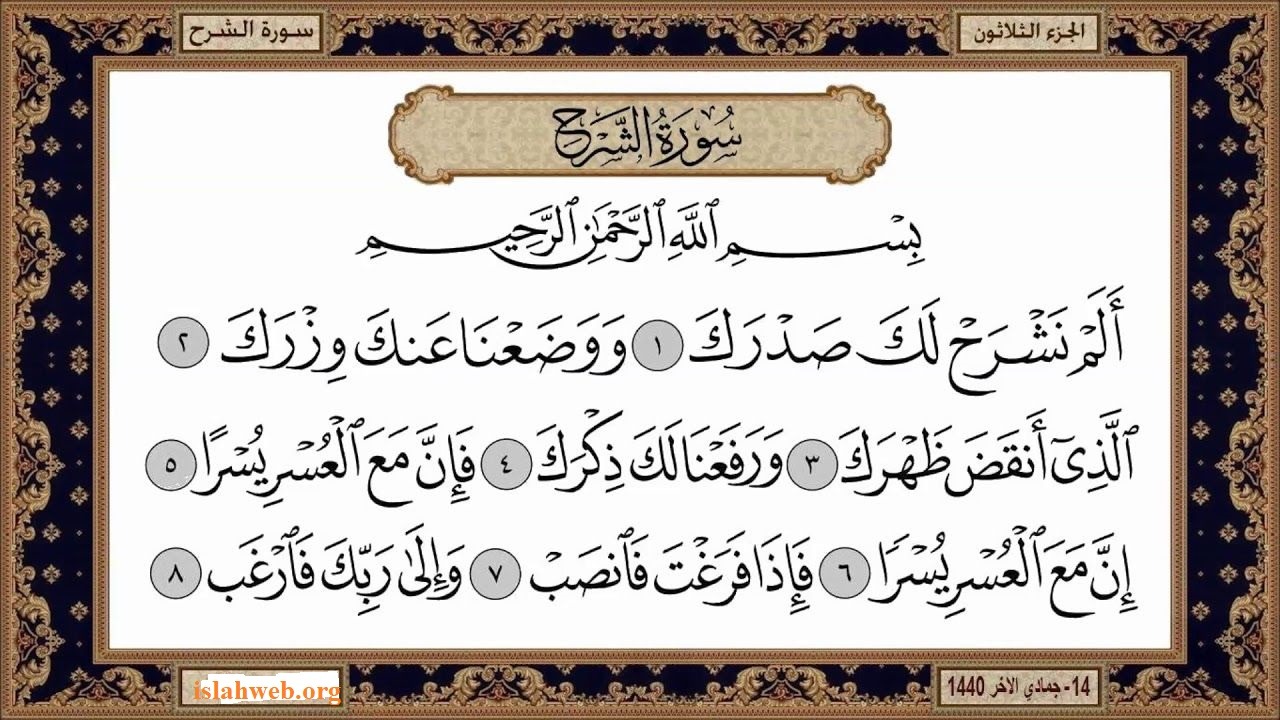 الجزء الثلاثون
سورة الشرح
سُورَةُ الشَّرْحِ
بِسْمِ ٱللَّهِ ٱلرَّحْمَٰنِ ٱلرَّحِيمِ
أَلَمْ نَشْرَحْ لَكَ صَدْرَكَ ١ وَوَضَعْنَا عَنكَ وِزْرَكَ ٢
ٱلَّذِىٓ أَنقَضَ ظَهْرَكَ ٣ وَرَفَعْنَا لَكَ ذِكْرَكَ ٤ فَإِنَّ مَعَ ٱلْعُسْرِ يُسْرًا ٥
إِنَّ مَعَ ٱلْعُسْرِ يُسْرًا ٦ فَإِذَا فَرَغْتَ فَٱنصَبْ ٧ وَإِلَىٰ رَبِّكَ فَٱرْغَب ٨
14- جمادي الاخر 1440
islahweb.org